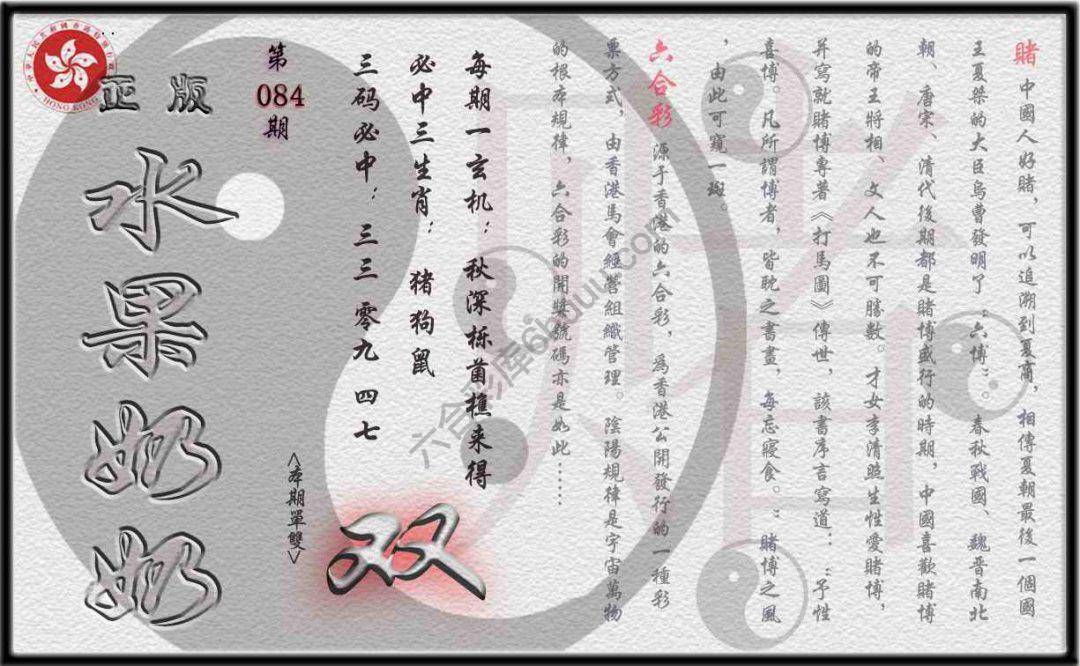 賭 中國人好賭，可以追溯到夏商，相傳夏朝最後一個國
王夏桀的大臣烏曹發明了：六博：。春秋戰國、魏晋南北
朝、唐宋、清代後期都是賭博盛行的時期，中國喜歡賭博
的帝王將相、文人也不可勝數。才女李清照生性愛賭博，
并寫就賭博專著《打馬圖》傳世，該書序言寫道：：予性
喜博。凡所謂博者，皆耽之書畫，每忘寢食。：賭博之風
，由此可窺一斑。
六合彩 源于香港的六合彩，爲香港公開發行的一種彩
票方式，由香港馬會經營組織管理。陰陽規律是宇宙萬物
的根本規律，六合彩的開獎號碼亦是如此……
每期一玄机：秋深栎菌樵来得
必中三生肖：猪狗鼠
三码必中：三三 零九 四七
双
<本期單雙>
第
084
期
正版
水果奶奶
HONG KONG
六合彩库6kuuu.com